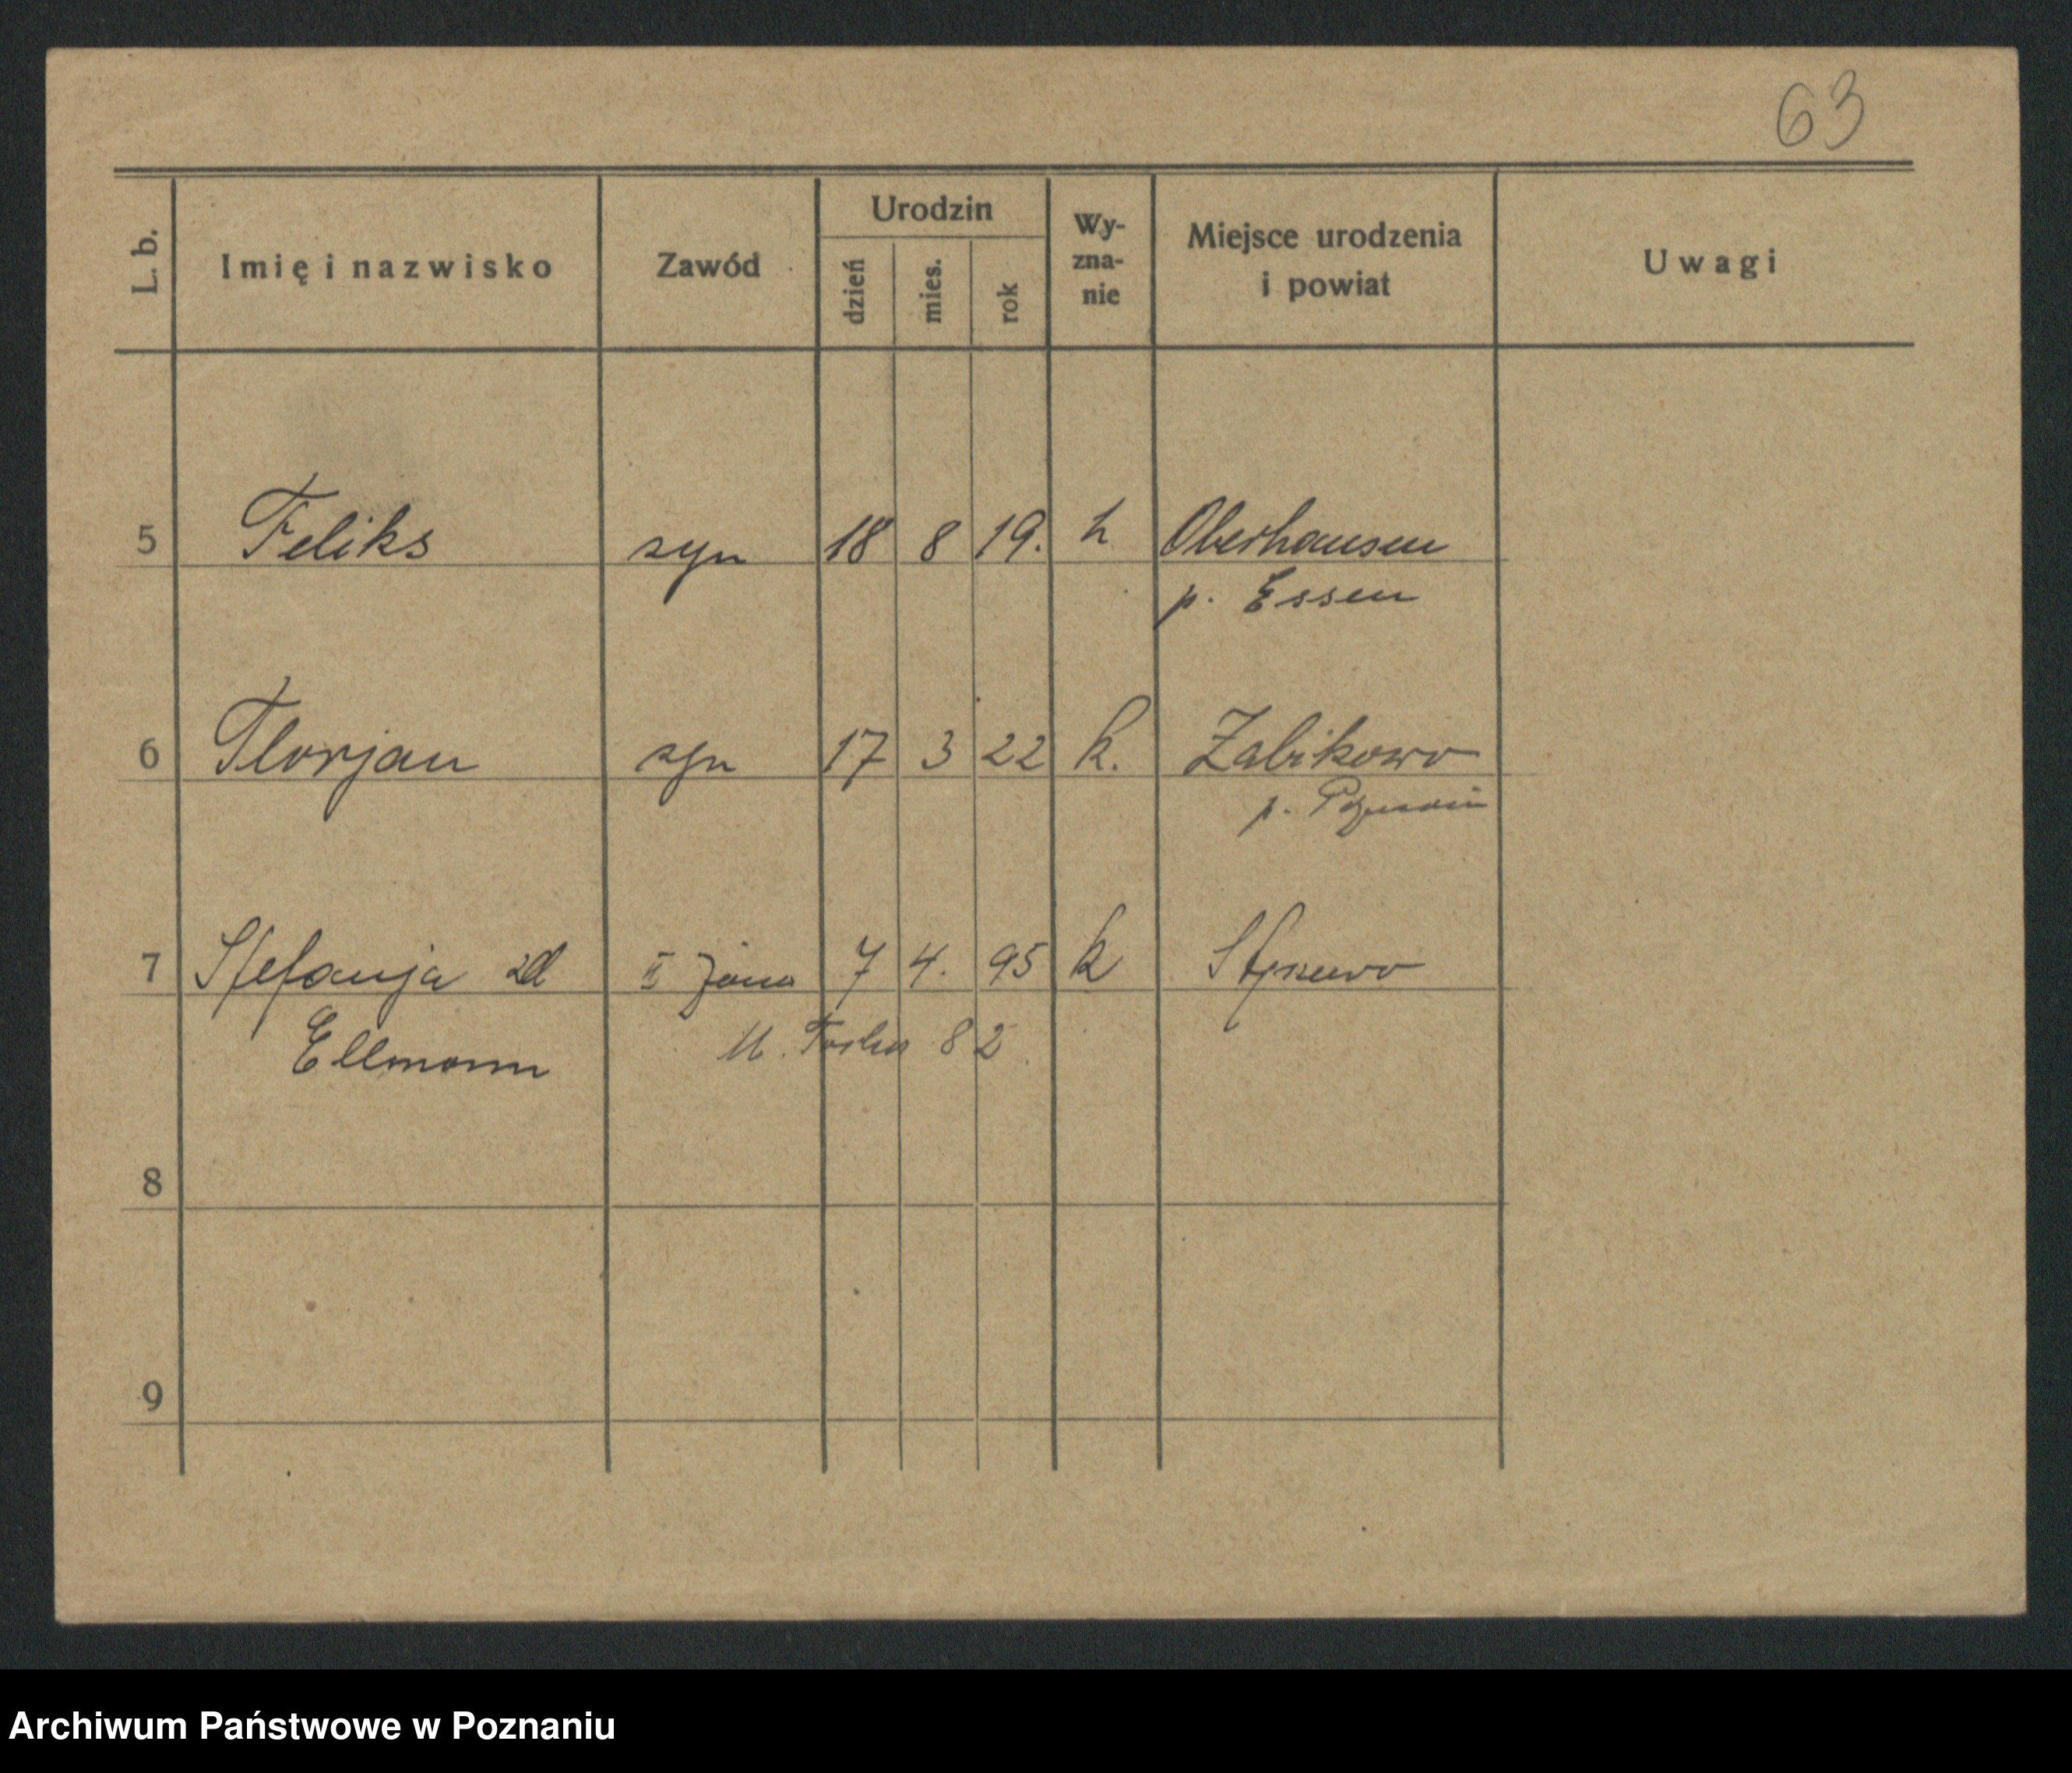 63
L. b. Imię i nazwisko Zawód Urodzin dzień mies. rok Wy-zna-nie Miejsce urodzenia i powiat Uwagi
5 Feliks syn 18 8 19. k Oberhausen
p. Essen
6 Florjan syn 17 3 22 k. Żabikowo
p. Poznań
7 Stefanja zd II żona 7 4. 95 k
Ellmann 82
8
9
Archiwum Państwowe w Poznaniu